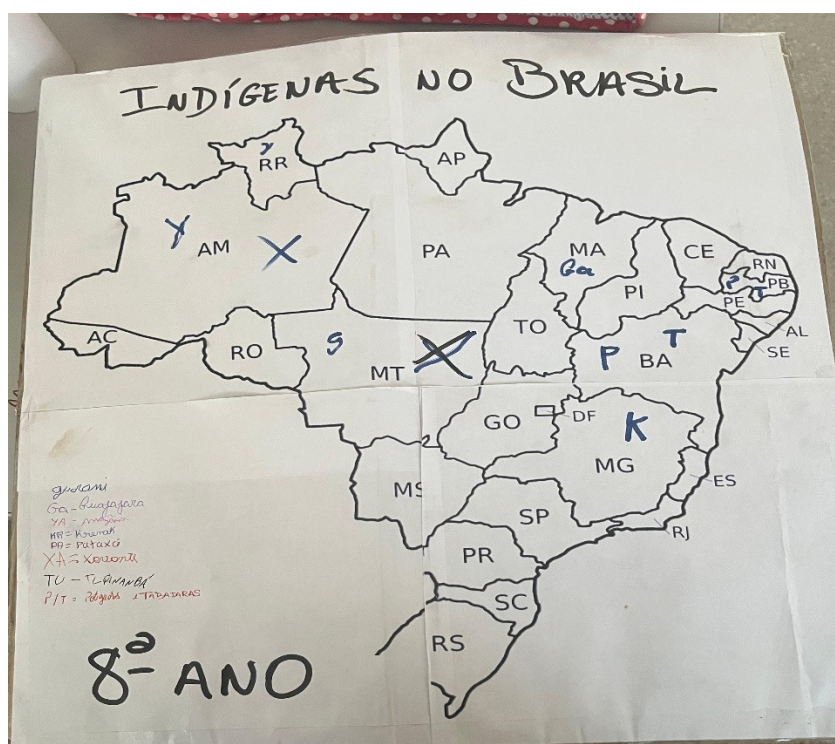 INDÍGENAS NO BRASIL
y
RR
AP
Y
AM
X
PA
MA
Ga
CE
RN
P
T
PB
PI
PE
AL
SE
AC
RO
S
MT
X
TO
P
T
BA
GO
DF
K
MG
ES
MS
SP
RJ
PR
SC
RS
guarani
Ga - Guajajara
YA -
KR = Krenak
PA = Pataxó
XA =
TU - TUPINANBÁ
P/T = TABAJARAS
8ª ANO